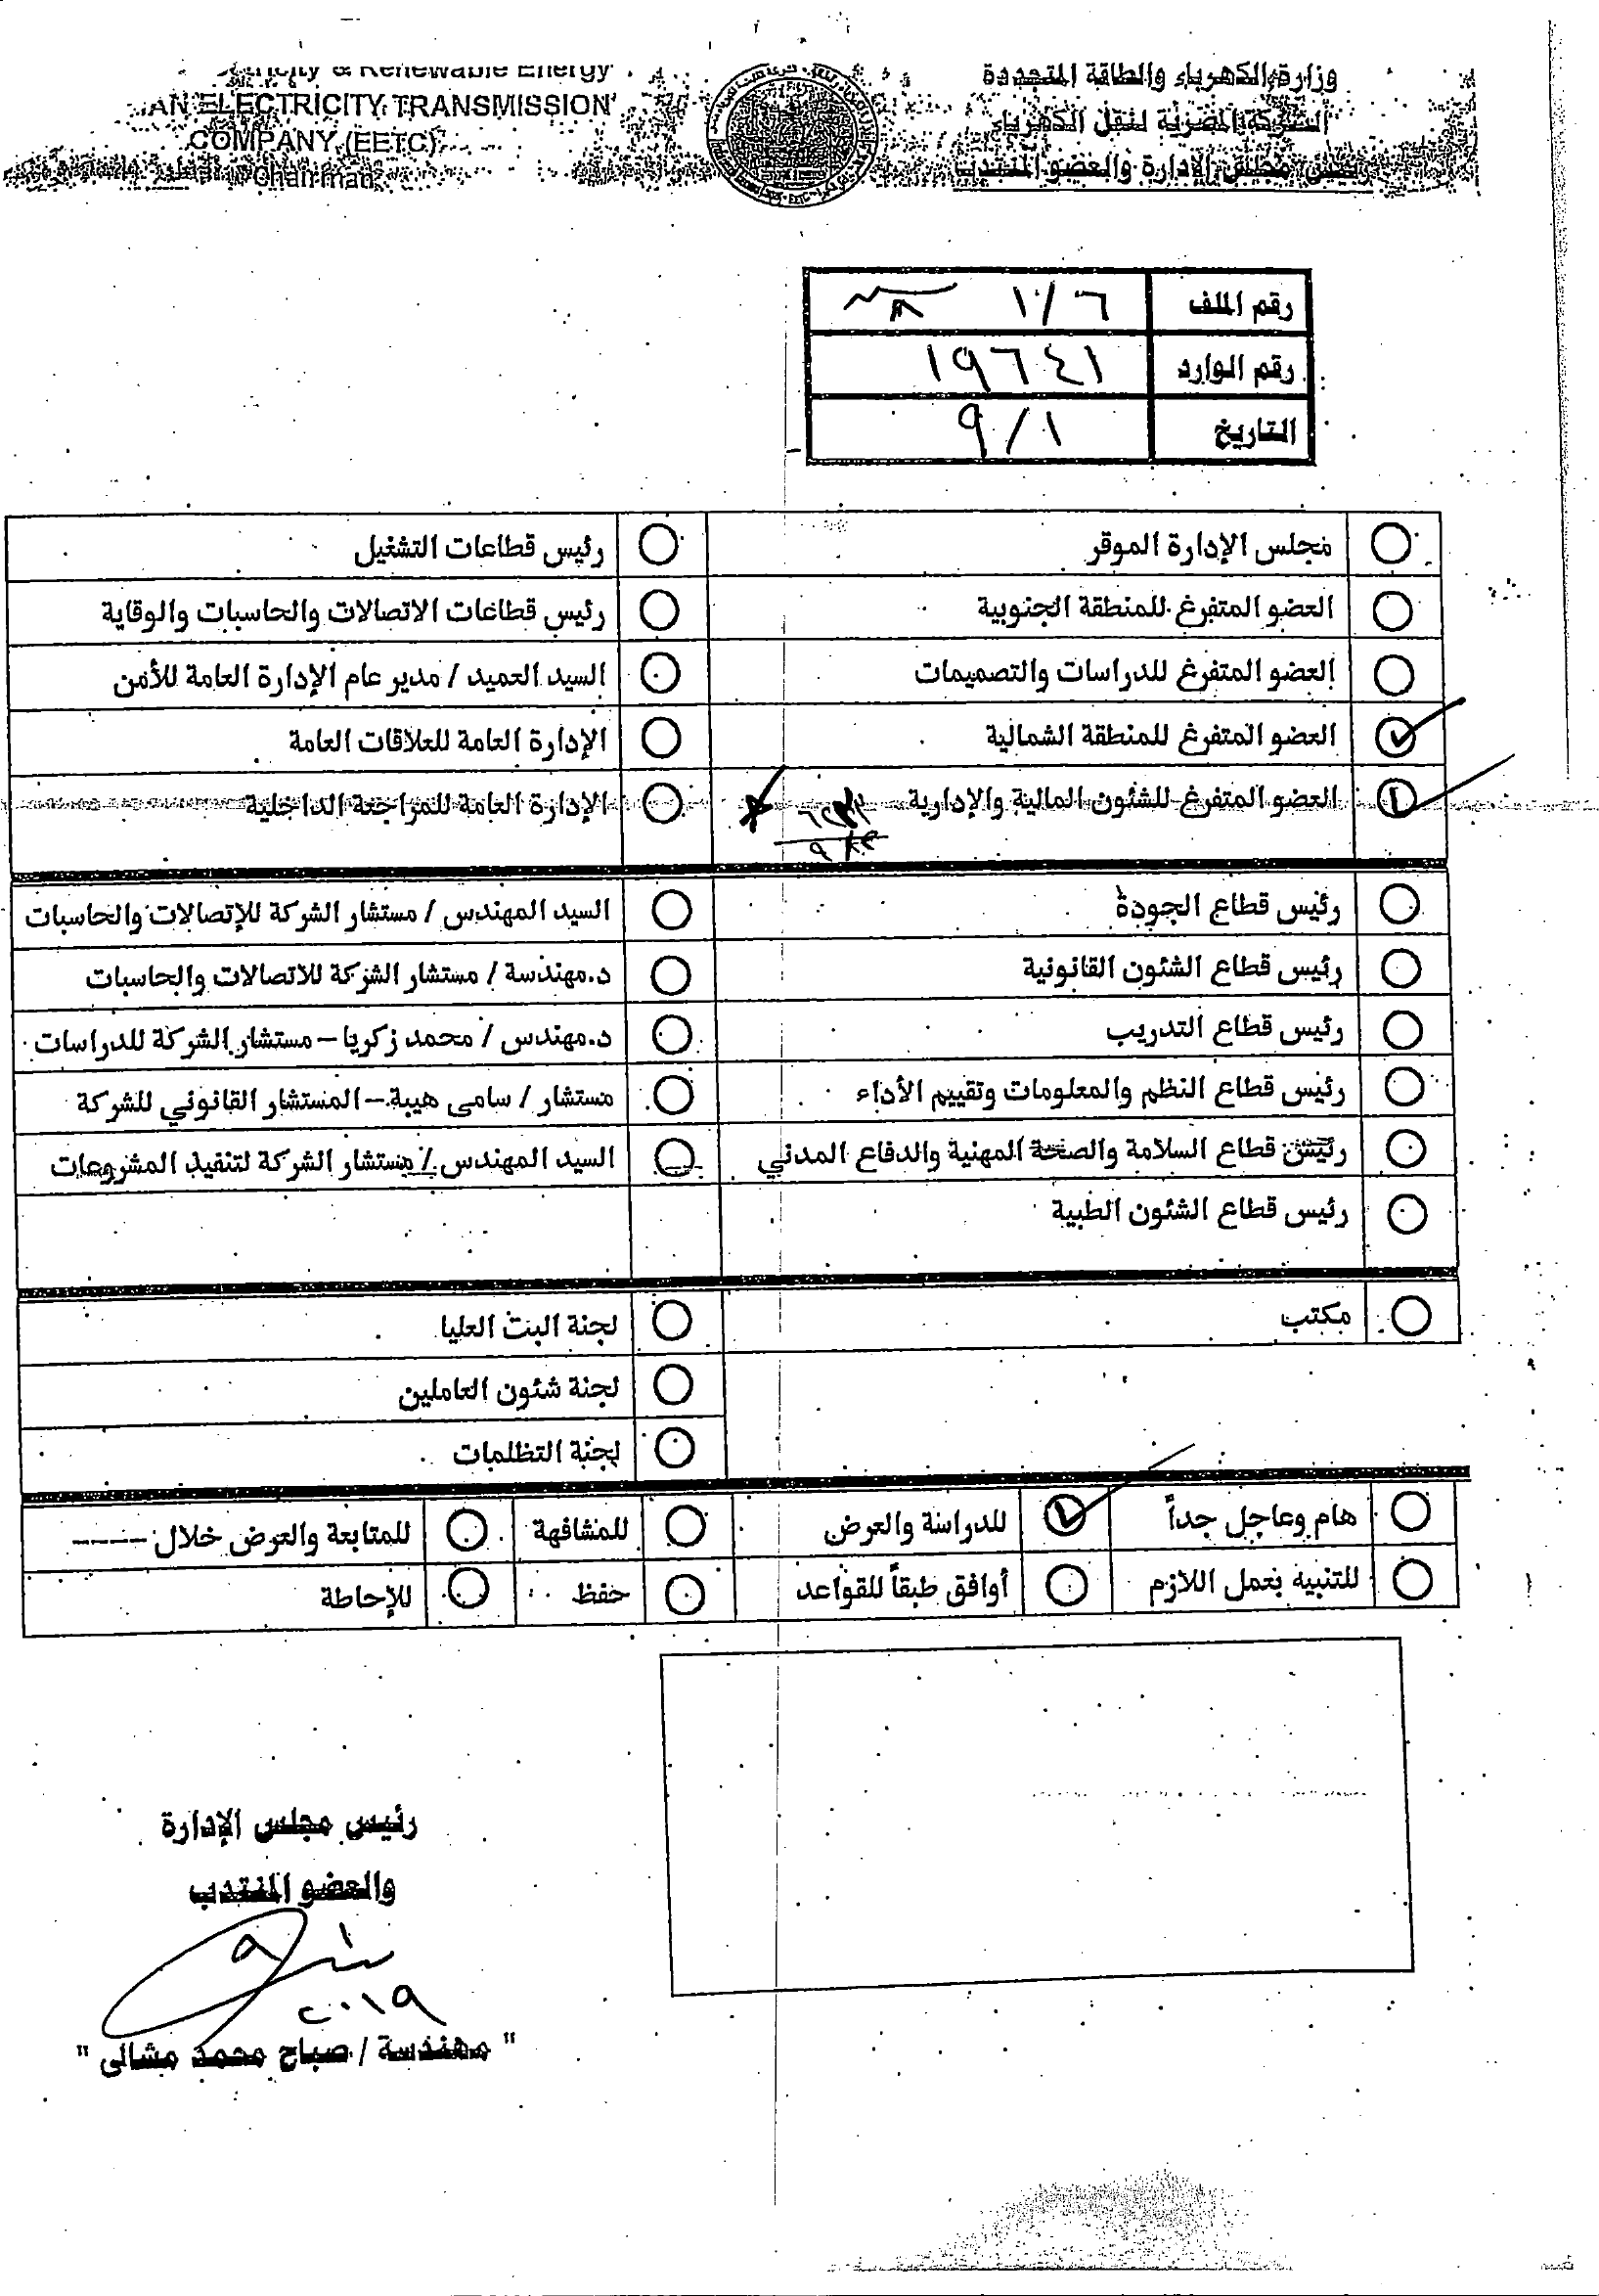 وزارة الكهرباء والطاقة المتجددة
الشركة المصرية لنقل الكهرباء
رئيس مجلس الإدارة والعضو المنتدب
Renewable Energy
AN ELECTRICITY TRANSMISSION
COMPANY (EETC)
Chairman
رقم الملف ١/٦
رقم الوارد ١٩٦٤١
التاريخ ٩/١
مجلس الإدارة الموقر
رئيس قطاعات التشغيل
العضو المتفرغ للمنطقة الجنوبية
رئيس قطاعات الاتصالات والحاسبات والوقاية
العضو المتفرغ للدراسات والتصميمات
السيد العميد / مدير عام الإدارة العامة للأمن
العضو المتفرغ للمنطقة الشمالية
الإدارة العامة للعلاقات العامة
العضو المتفرغ للشئون المالية والإدارية
الإدارة العامة للمراجعة الداخلية
رئيس قطاع الجودة
السيد المهندس / مستشار الشركة للإتصالات والحاسبات
رئيس قطاع الشئون القانونية
د.مهندسة / مستشار الشركة للاتصالات والحاسبات
رئيس قطاع التدريب
د.مهندس / محمد زكريا – مستشار الشركة للدراسات
رئيس قطاع النظم والمعلومات وتقييم الأداء
مستشار / سامى هيبة – المستشار القانوني للشركة
رئيس قطاع السلامة والصحة المهنية والدفاع المدني
السيد المهندس / مستشار الشركة لتنفيذ المشروعات
رئيس قطاع الشئون الطبية
مكتب
لجنة البت العليا
لجنة شئون العاملين
لجنة التظلمات
هام وعاجل جداً
للدراسة والعرض
للمشافهة
للمتابعة والعرض خلال -----
للتنبية بعمل اللازم
أوافق طبقاً للقواعد
حفظ
للإحاطة
رئيس مجلس الإدارة
والعضو المنتدب
٢٠١٩
" مهندسة / صباح محمد مشالى "